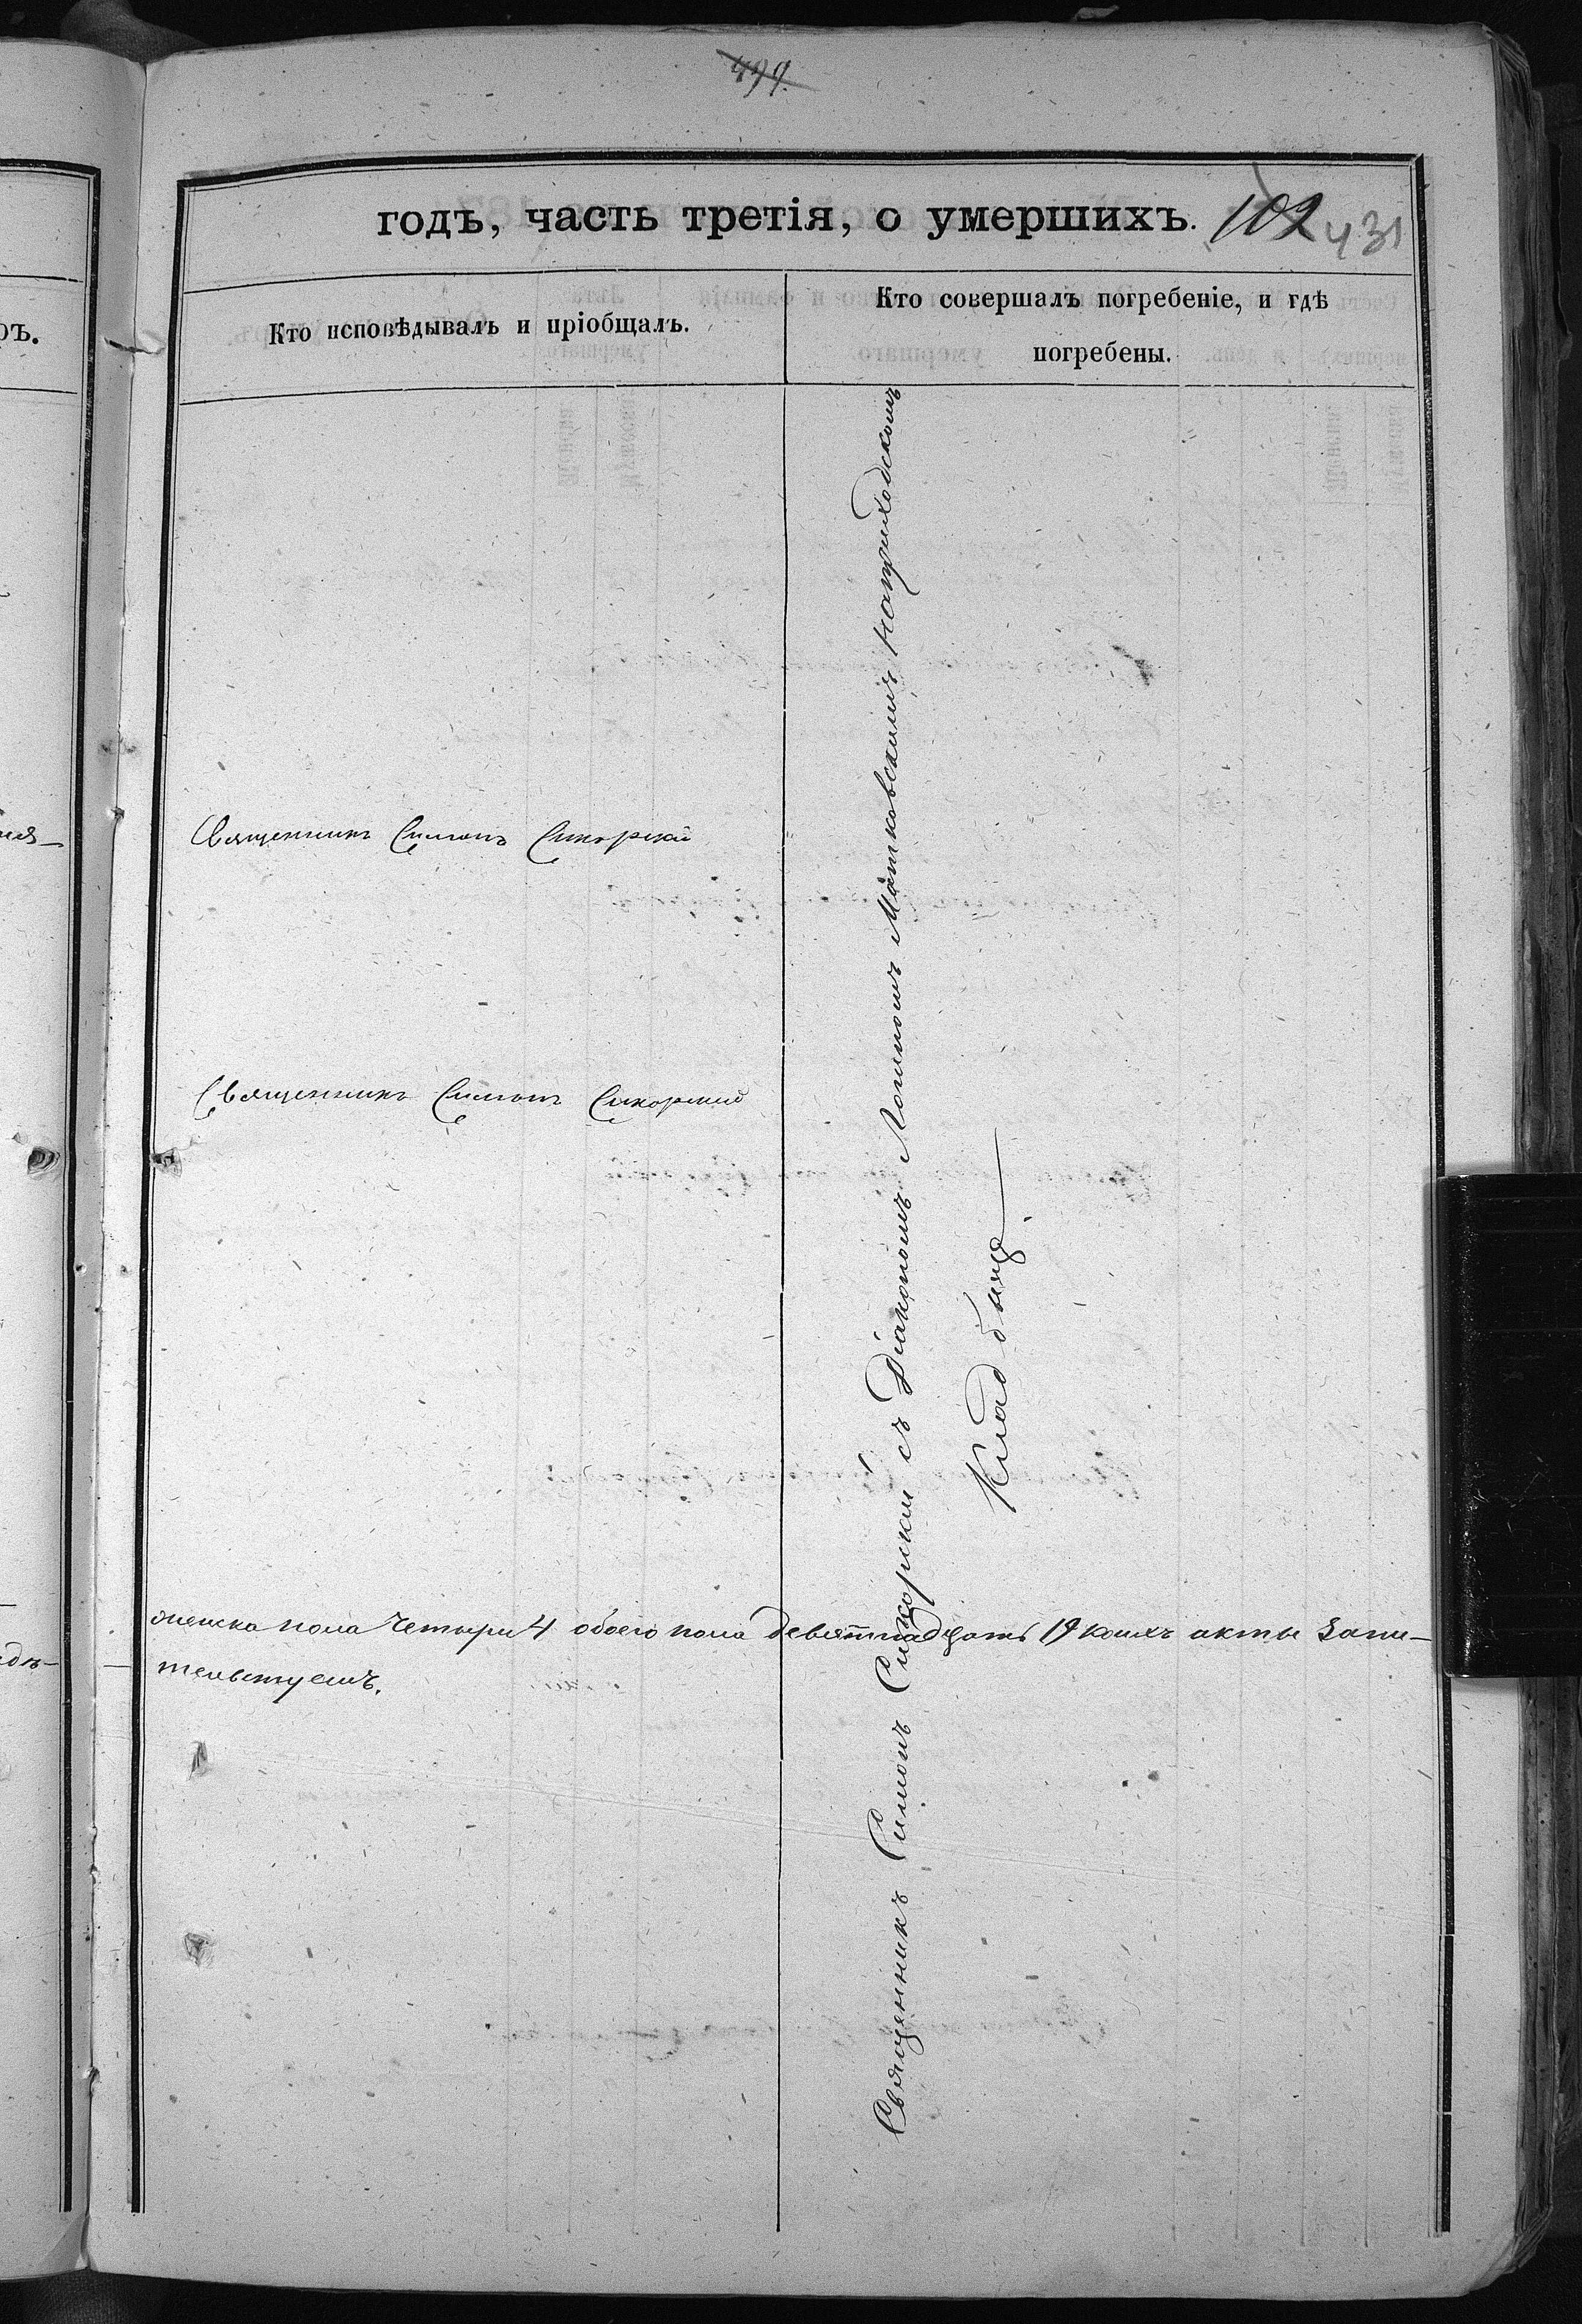 499.
годъ, часть третія, о умершихъ. 102 431
Кто исповѣдывалъ и пріобщалъ.
Кто совершалъ погребеніе, и гдѣ
погребены.
Священникъ Симонъ Сикорскій
Священникъ Симонъ Сикорскій
женска пола четыри 4 обоего пола девятнадцать 19 коихъ акты запи-
тельствуемъ.
Священникъ Симонъ Сикорскій съ Діакономъ Матковскимъ на приходскомъ
Кладбищѣ